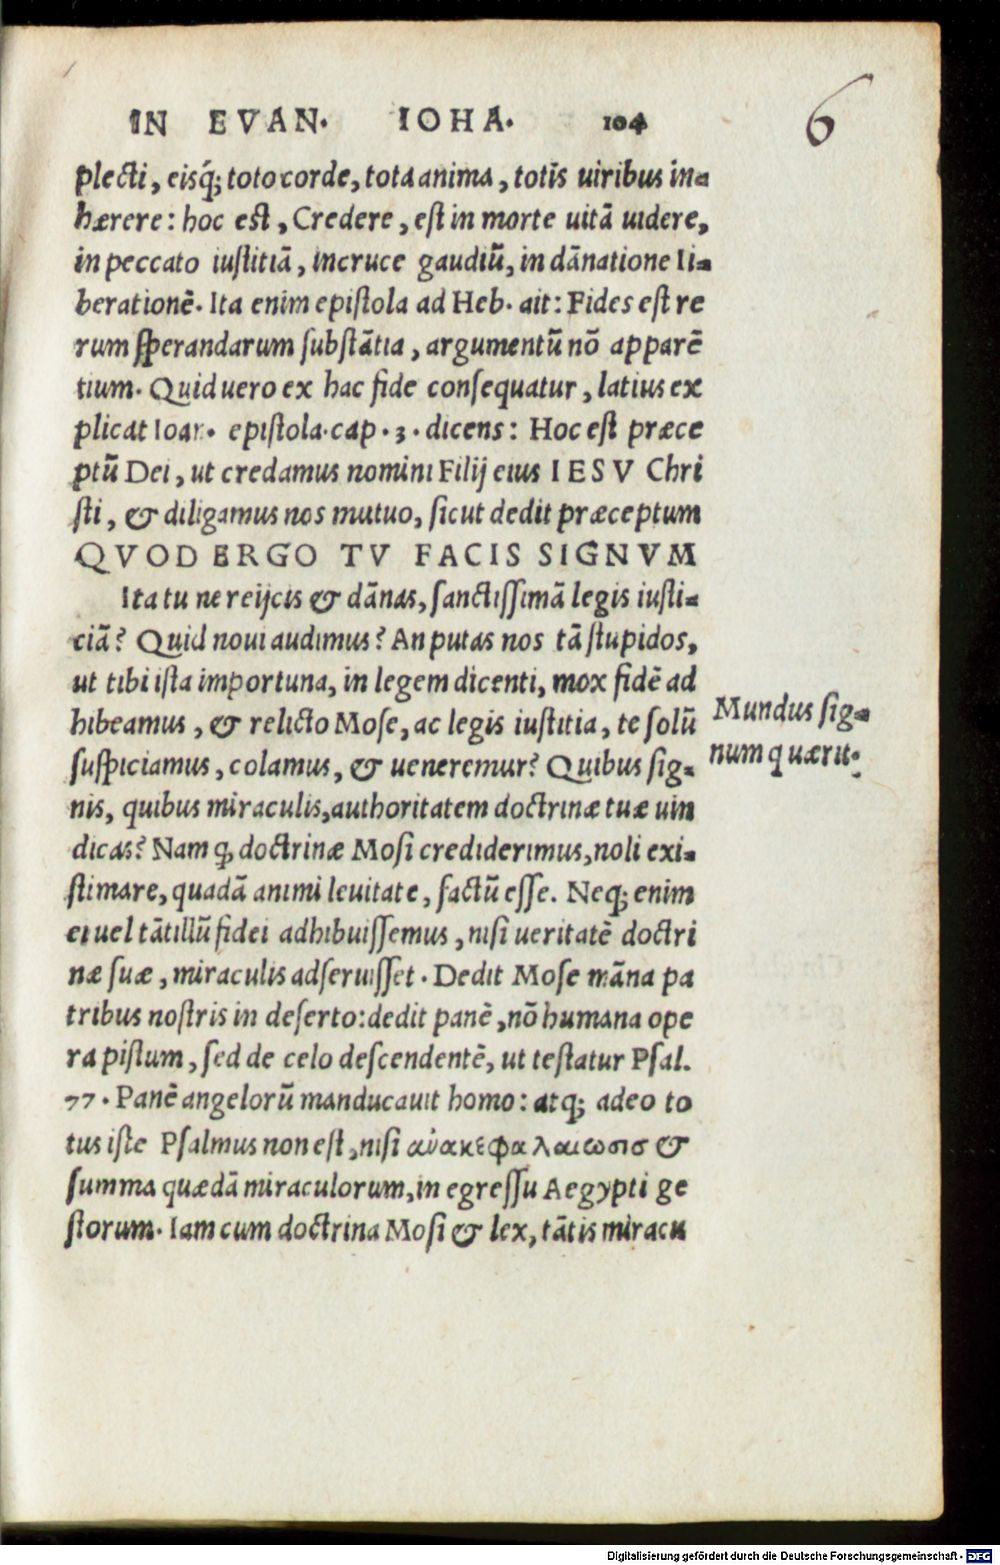 IN EVAN. IOHA. 104
6
plecti, eisq́; toto corde, tota anima, totis uiribus in-
hærere: hoc est, Credere, est in morte uitā uidere,
in peccato iustitiā, in cruce gaudiū, in dānatione li-
berationē. Ita enim epistola ad Heb. ait: Fides est re
rum sperandarum substātia, argumentū nō apparē
tium. Quid uero ex hac fide consequatur, latius ex
plicat Ioan. epistola. cap. 3. dicens: Hoc est præce
ptū Dei, ut credamus nomini Filij eius IESV Chri
sti, & diligamus nos mutuo, sicut dedit præceptum
QVOD ERGO TV FACIS SIGNVM
Ita tu ne reijcis & dānas, sanctissimā legis iusti-
ciā? Quid noui audimus? An putas nos tā stupidos,
ut tibi ista importuna, in legem dicenti, mox fidē ad
hibeamus, & relicto Mose, ac legis iustitia, te solū
suspiciamus, colamus, & ueneremur? Quibus sig-
nis, quibus miraculis, authoritatem doctrinæ tuæ uin
dicas? Nam q, doctrinæ Mosi crediderimus, noli exi-
stimare, quadā animi leuitate, factū esse. Neq; enim
ei uel tātillū fidei adhibuissemus, nisi ueritatē doctri
næ suæ, miraculis adseruisset. Dedit Mose māna pa
tribus nostris in deserto: dedit panē, nō humana ope
ra pistum, sed de celo descendentē, ut testatur Psal.
77. Panē angelorū manducauit homo: atq; adeo to
tus iste Psalmus non est, nisi ἀνακεφαλαιωσισ &
summa quædā miraculorum, in egressu Aegypti ge
storum. Iam cum doctrina Mosi & lex, tātis miracu
Mundus sig-
num quærit.
Digitalisierung gefördert durch die Deutsche Forschungsgemeinschaft - DFG